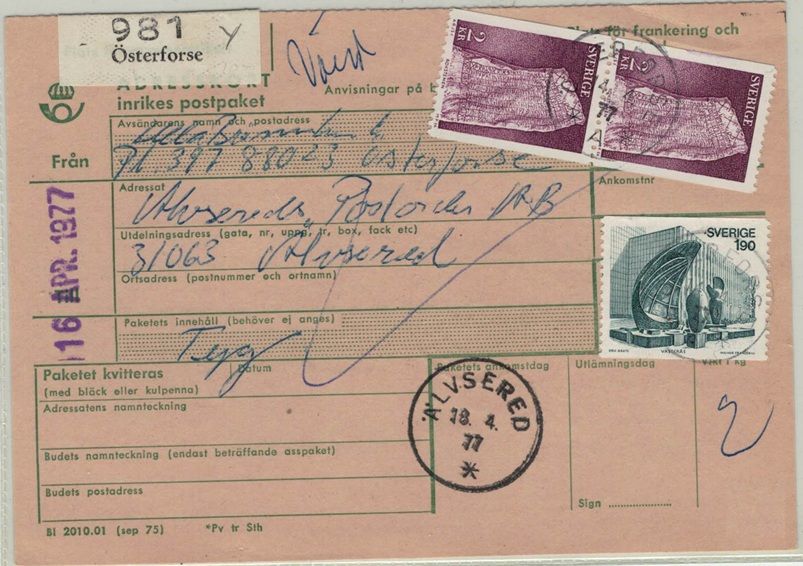 981 Y
Österforse
ADRESSKORT
inrikes postpaket
Anvisningar på b
Plats för frankering och
Avsändarens namn och postadress
Från
Pl. 397 88023 Österforse
Adressat
Alvsereds Postorder AB
Utdelningsadress (gata, nr, uppg, tr, box, fack etc)
31063 Alvsered
Ortsadress (postnummer och ortnamn)
Paketets innehåll (behöver ej anges)
Ankomstnr
16 APR. 1977
SVERIGE
2 KR
SVERIGE
2 KR
77
SVERIGE
190
VÄSTERÅS
Paketet kvitteras
Datum
(med bläck eller kulpenna)
Adressatens namnteckning
Budets namnteckning (endast beträffande asspaket)
Budets postadress
Paketets ankomstdag
Utlämningsdag
Vikt i kg
2
ÄLVSERED
18. 4.
77
Sign
BI 2010.01 (sep 75) *Pv tr Sth